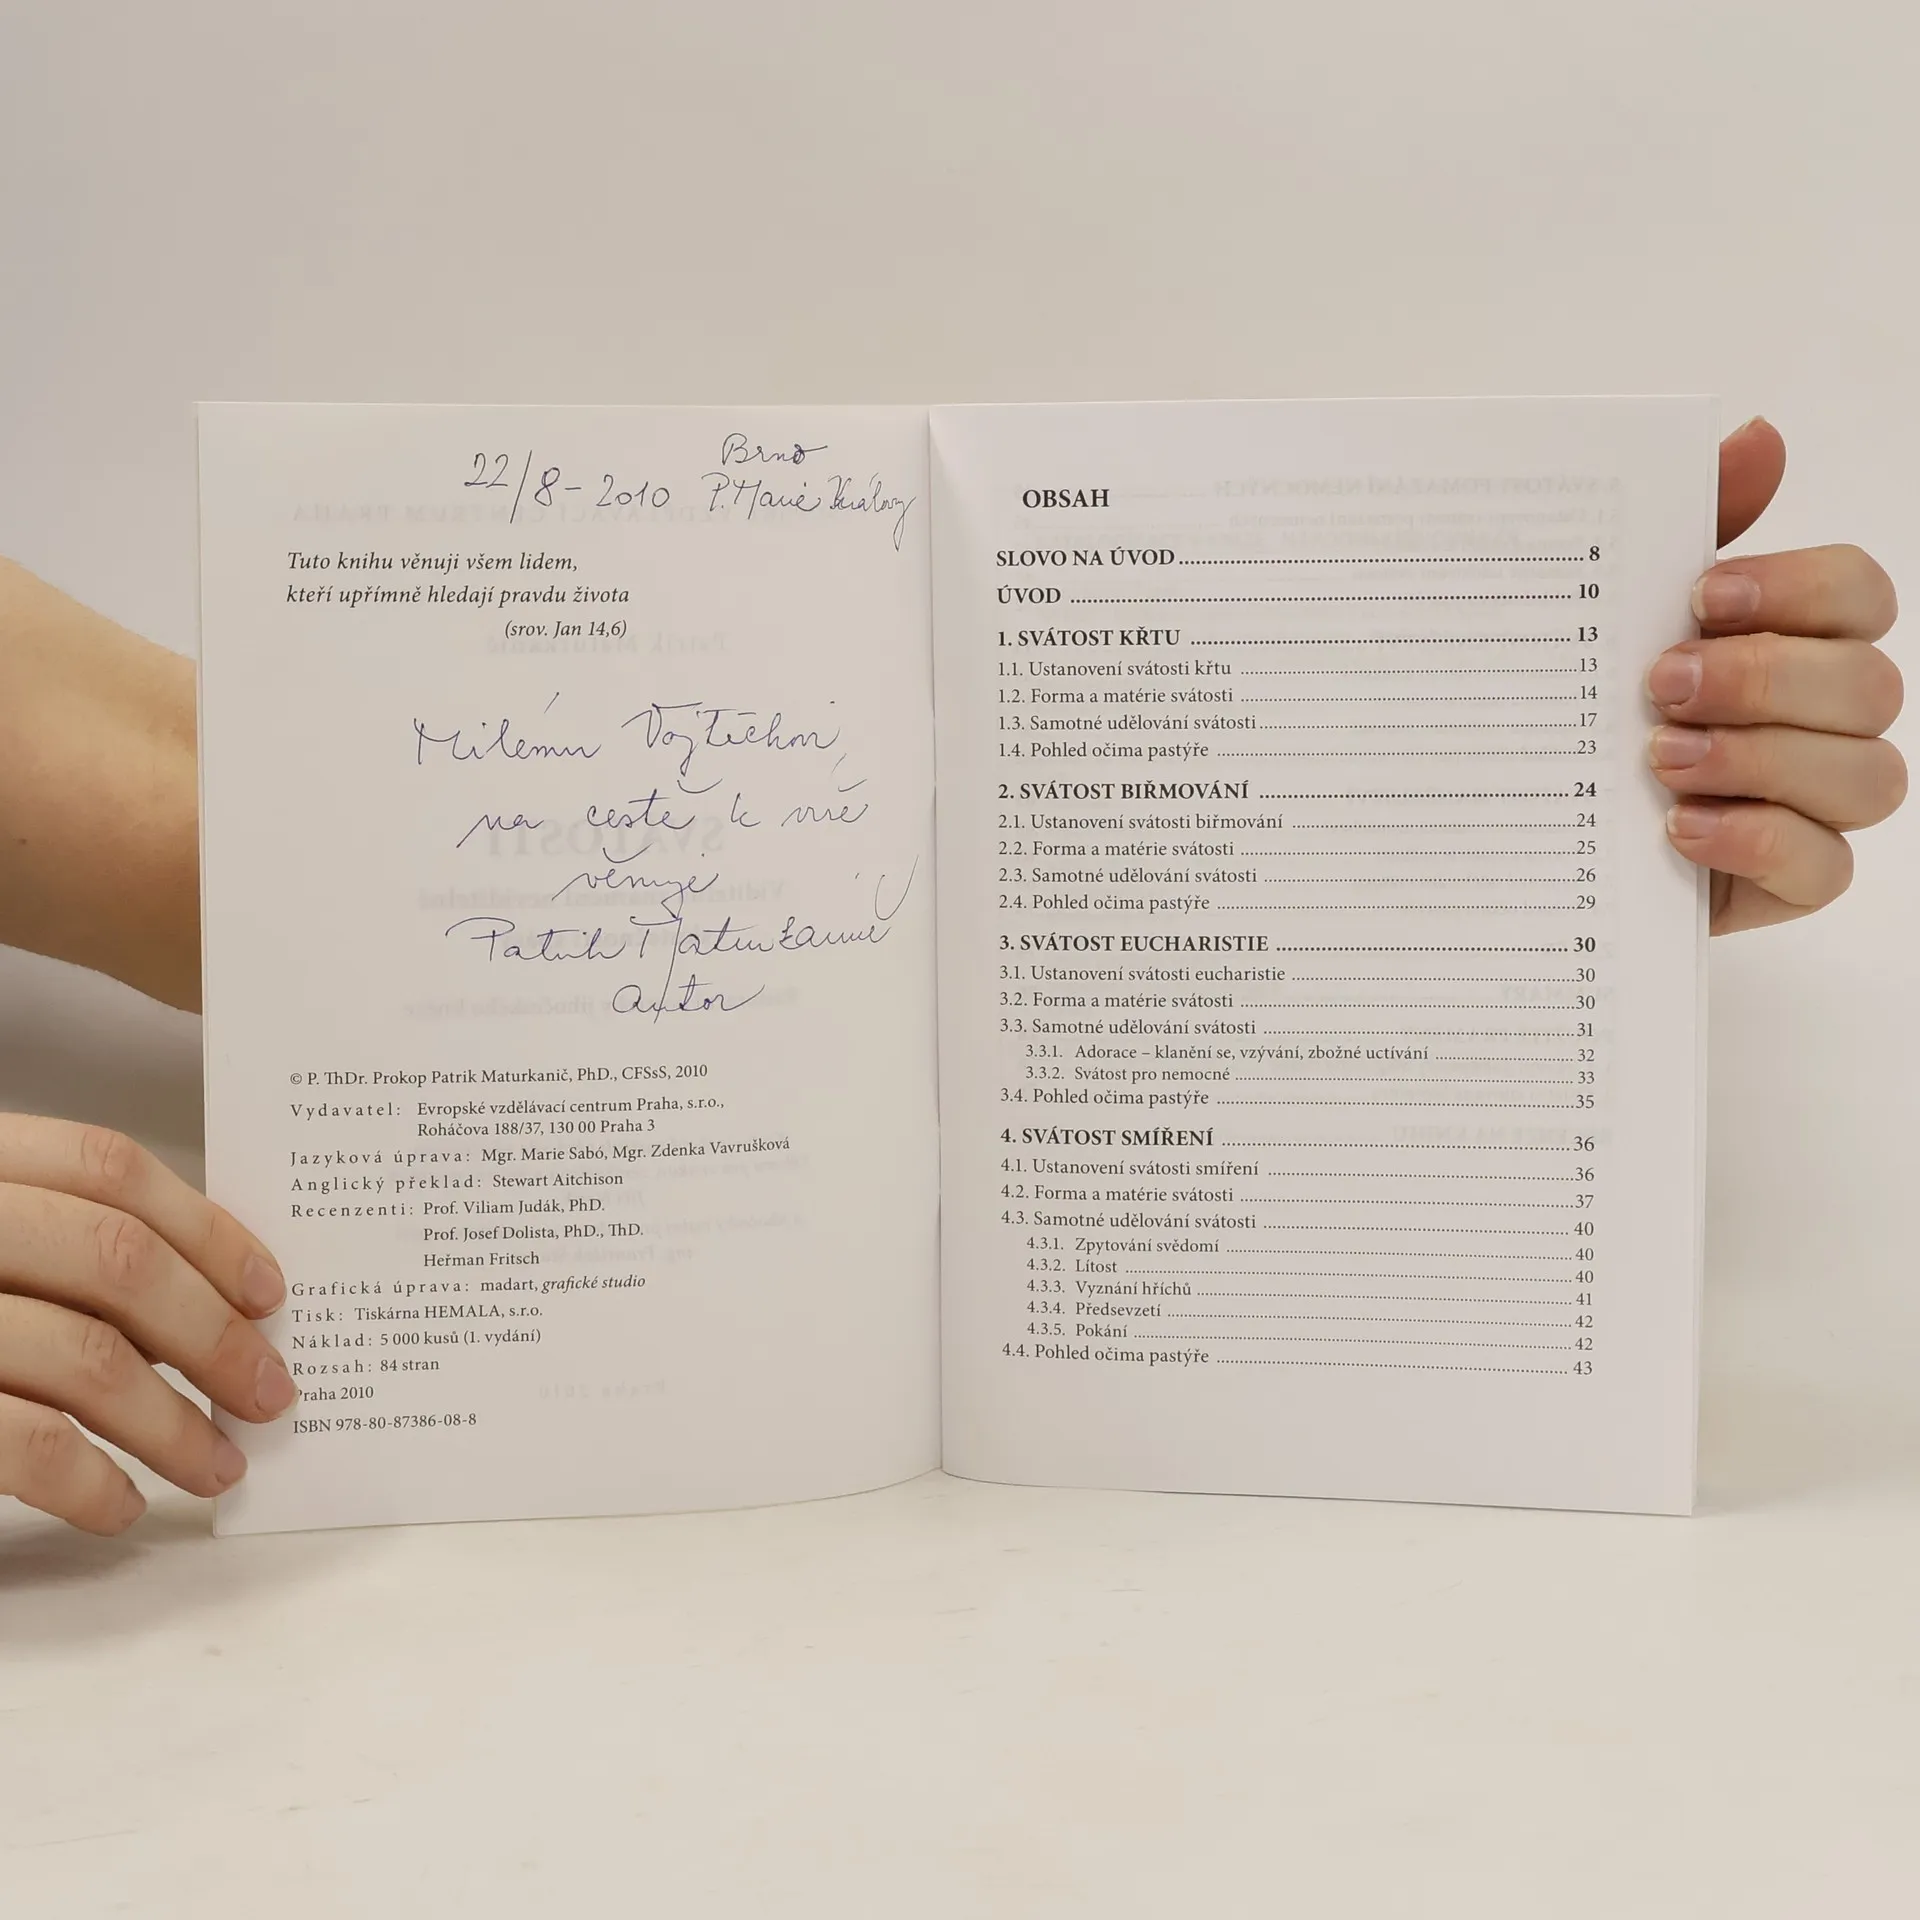 Brno
22/8-2010 P. Marie Královny
Tuto knihu věnuji všem lidem,
kteří upřímně hledají pravdu života
(srov. Jan 14,6)
Milému Vojtěchovi,
na cestě k víře
věnuje
Patrik Maturkanič
autor
© P. ThDr. Prokop Patrik Maturkanič, PhD., CFSsS, 2010
Vydavatel: Evropské vzdělávací centrum Praha, s.r.o.,
Roháčova 188/37, 130 00 Praha 3
Jazyková úprava: Mgr. Marie Sabó, Mgr. Zdenka Vavrušková
Anglický překlad: Stewart Aitchison
Recenzenti: Prof. Viliam Judák, PhD.
Prof. Josef Dolista, PhD., ThD.
Heřman Fritsch
Grafická úprava: madart, grafické studio
Tisk: Tiskárna HEMALA, s.r.o.
Náklad: 5 000 kusů (1. vydání)
Rozsah: 84 stran
Praha 2010
ISBN 978-80-87386-08-8
OBSAH
SLOVO NA ÚVOD ........ 8
ÚVOD ........ 10
1. SVÁTOST KŘTU ........ 13
1.1. Ustanovení svátosti křtu ........ 13
1.2. Forma a matérie svátosti ........ 14
1.3. Samotné udělování svátosti ........ 17
1.4. Pohled očima pastýře ........ 23
2. SVÁTOST BIŘMOVÁNÍ ........ 24
2.1. Ustanovení svátosti biřmování ........ 24
2.2. Forma a matérie svátosti ........ 25
2.3. Samotné udělování svátosti ........ 26
2.4. Pohled očima pastýře ........ 29
3. SVÁTOST EUCHARISTIE ........ 30
3.1. Ustanovení svátosti eucharistie ........ 30
3.2. Forma a matérie svátosti ........ 30
3.3. Samotné udělování svátosti ........ 31
3.3.1. Adorace – klanění se, vzývání, zbožné uctívání ........ 32
3.3.2. Svátost pro nemocné ........ 33
3.4. Pohled očima pastýře ........ 35
4. SVÁTOST SMÍŘENÍ ........ 36
4.1. Ustanovení svátosti smíření ........ 36
4.2. Forma a matérie svátosti ........ 37
4.3. Samotné udělování svátosti ........ 40
4.3.1. Zpytování svědomí ........ 40
4.3.2. Lítost ........ 40
4.3.3. Vyznání hříchů ........ 41
4.3.4. Předsevzetí ........ 42
4.3.5. Pokání ........ 42
4.4. Pohled očima pastýře ........ 43